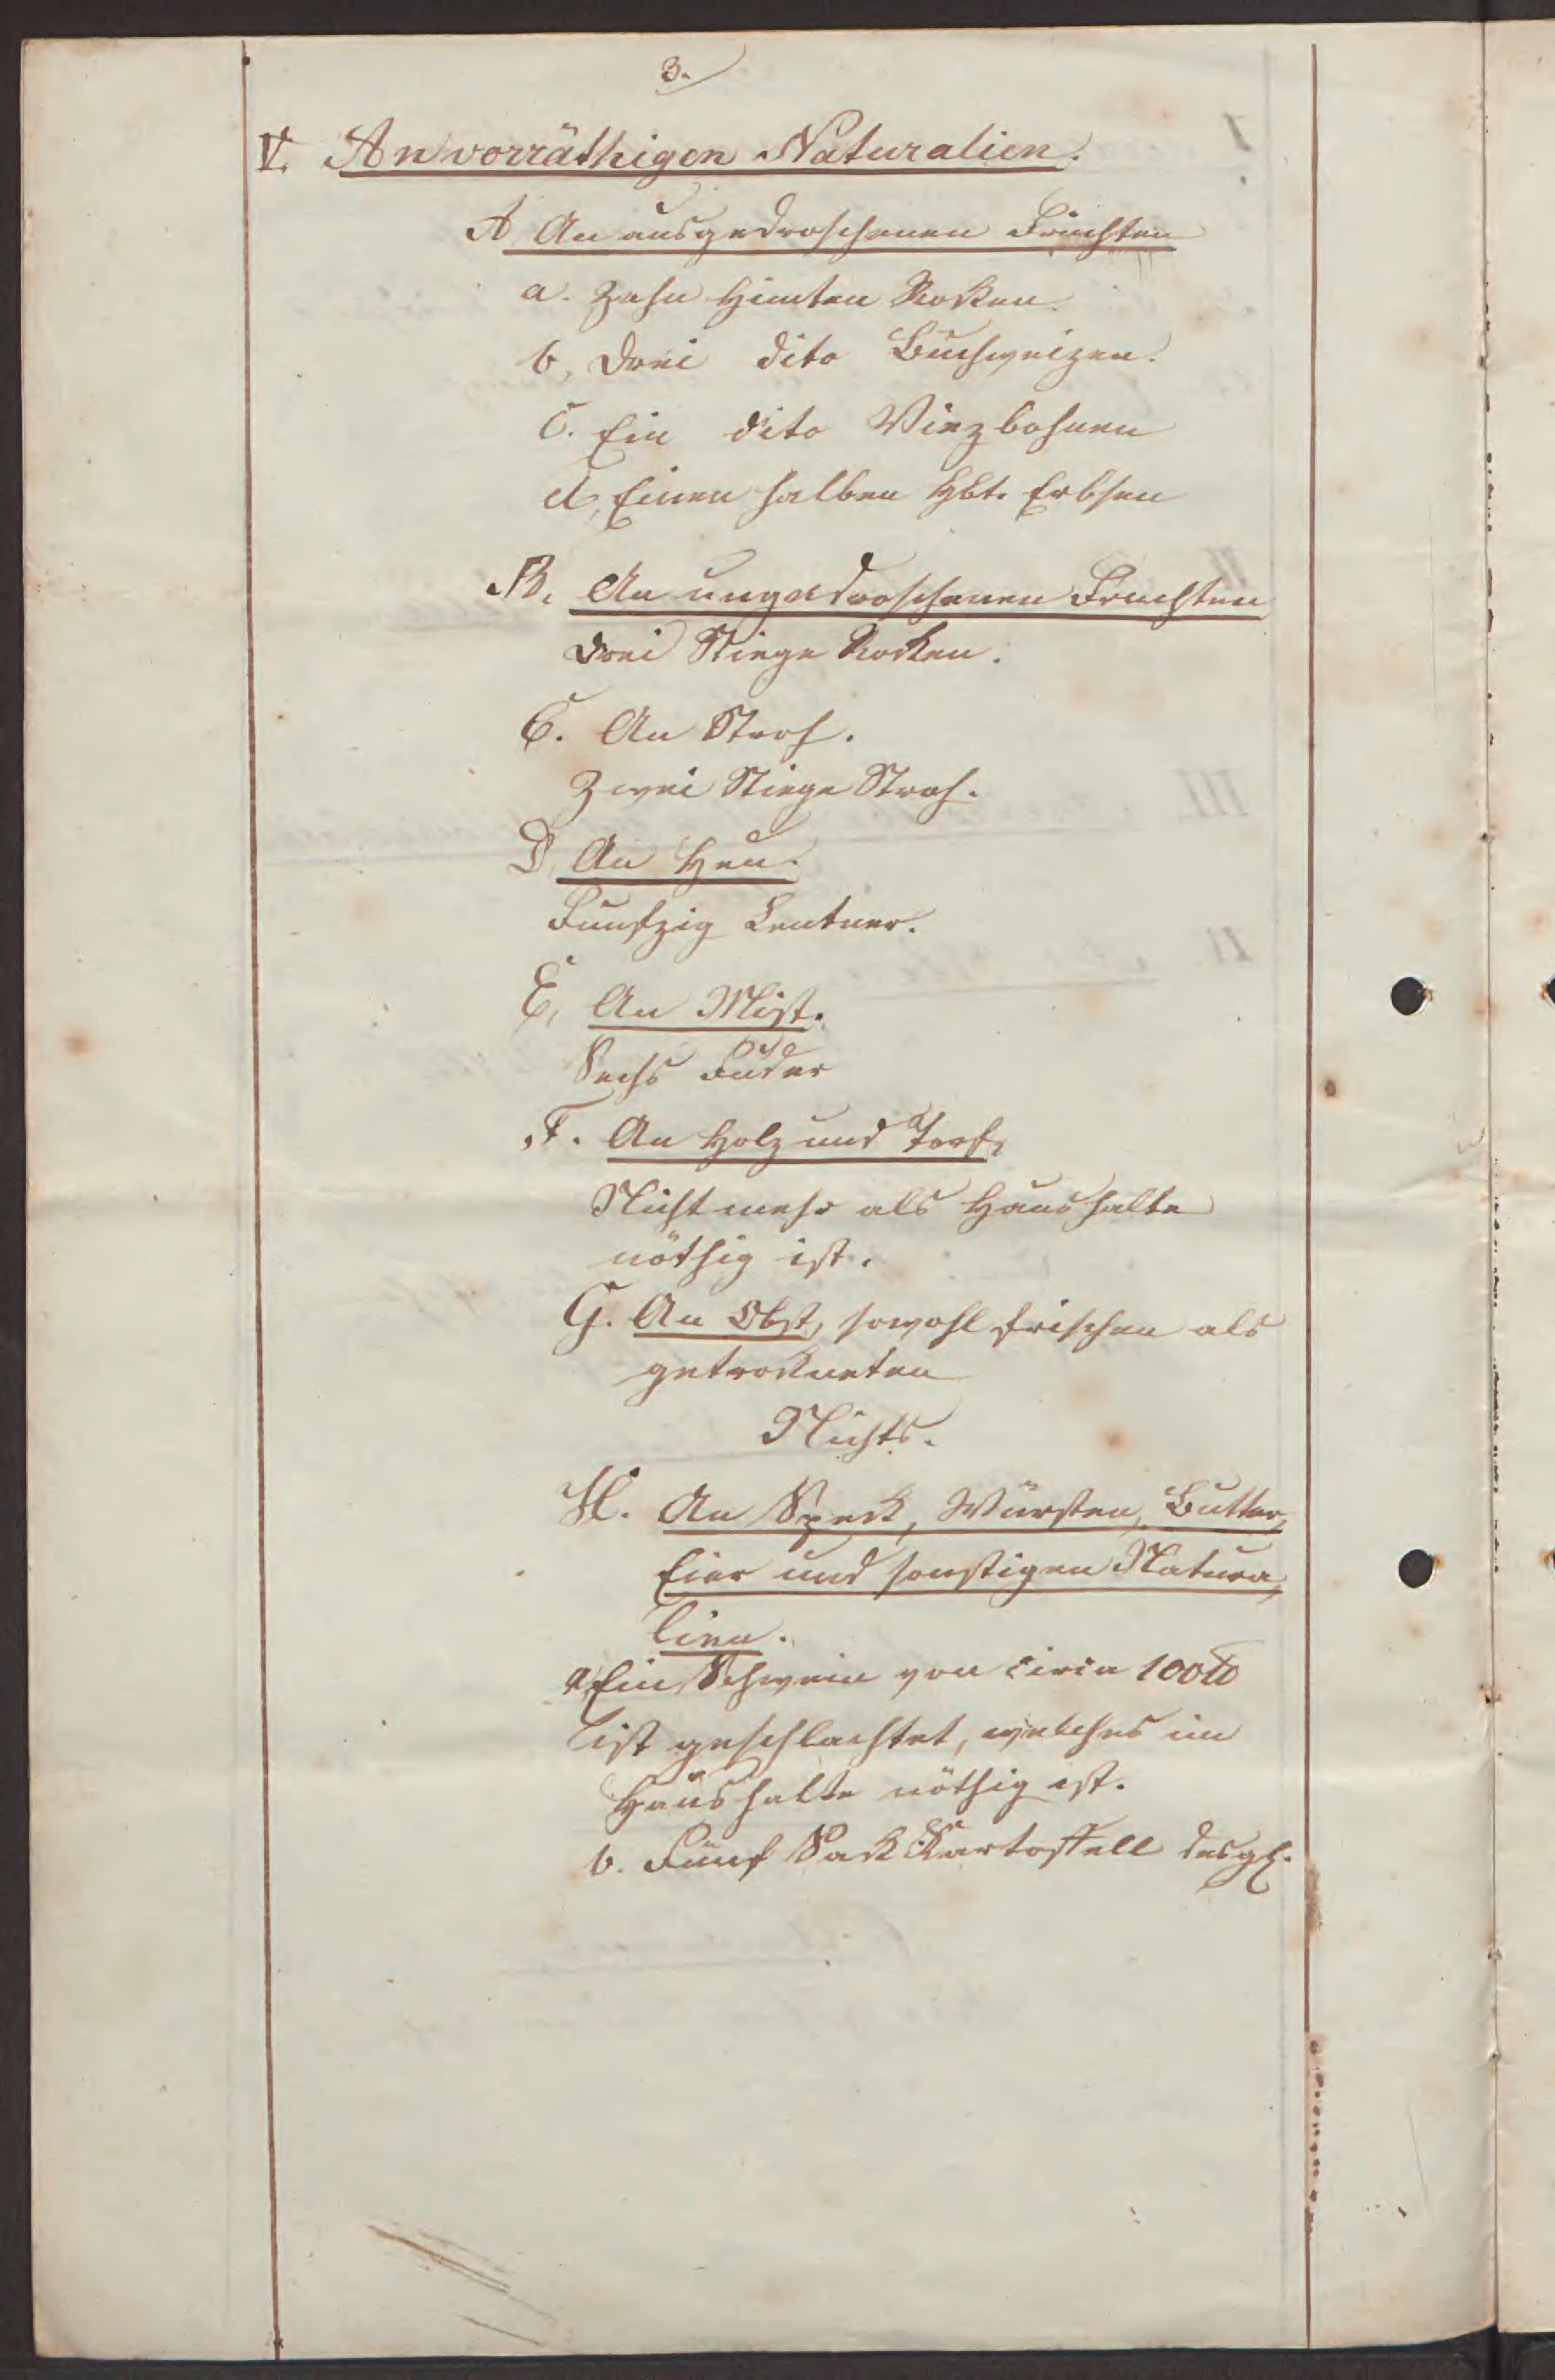 3.
V. An vorräthigen Naturalien.
A. An ausgedroschenen Früchten
a. Zehn Himten Rocken.
b, Drei dito Buchweizen.
c. Ein dito Vizbohnen
d, Einen halben Hbt. Erbsen
B. An ungedroschenen Früchten
Drei Stiege Rocken.
C. An Stroh.
Zwei Stiege Stroh.
D, An Heu.
Funfzig Centner.
E, An Mist.
Sechs Fuder
F. An Holz und Torf,
Nicht mehr als Haushalte
nöthig ist.
G. An Obst, sowohl frischen als
getrockneten
Nichts.
H. An Speck, Würsten, Butter,
Eier und sonstigen Natura,
lien.
a, Ein Schwein von circa 100 ℔
ist geschlachtet, welches im
Haushalte nöthig ist.
b. Fünf Sack Kartoffell desgl.